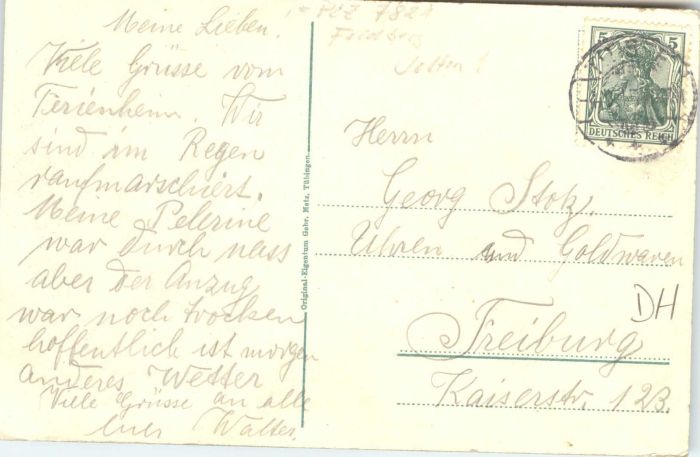 Meine Lieben!
Viele Grüsse vom
Ferienheim. Wir
sind im Regen
raufmarschiert.
Meine Pelerine
war durch nass
aber der Anzug
war noch trocken
hoffentlich ist morgen
anderes Wetter
Viele Grüsse an alle
Euer Walter.
= PLZ 7821
Feldberg
selten!
Original-Eigentum Gebr. Metz, Tübingen.
5 5
DEUTSCHES REICH
Herrn
Georg Stolz,
Uhren und Goldwaren
DH
Freiburg
Kaiserstr. 123.